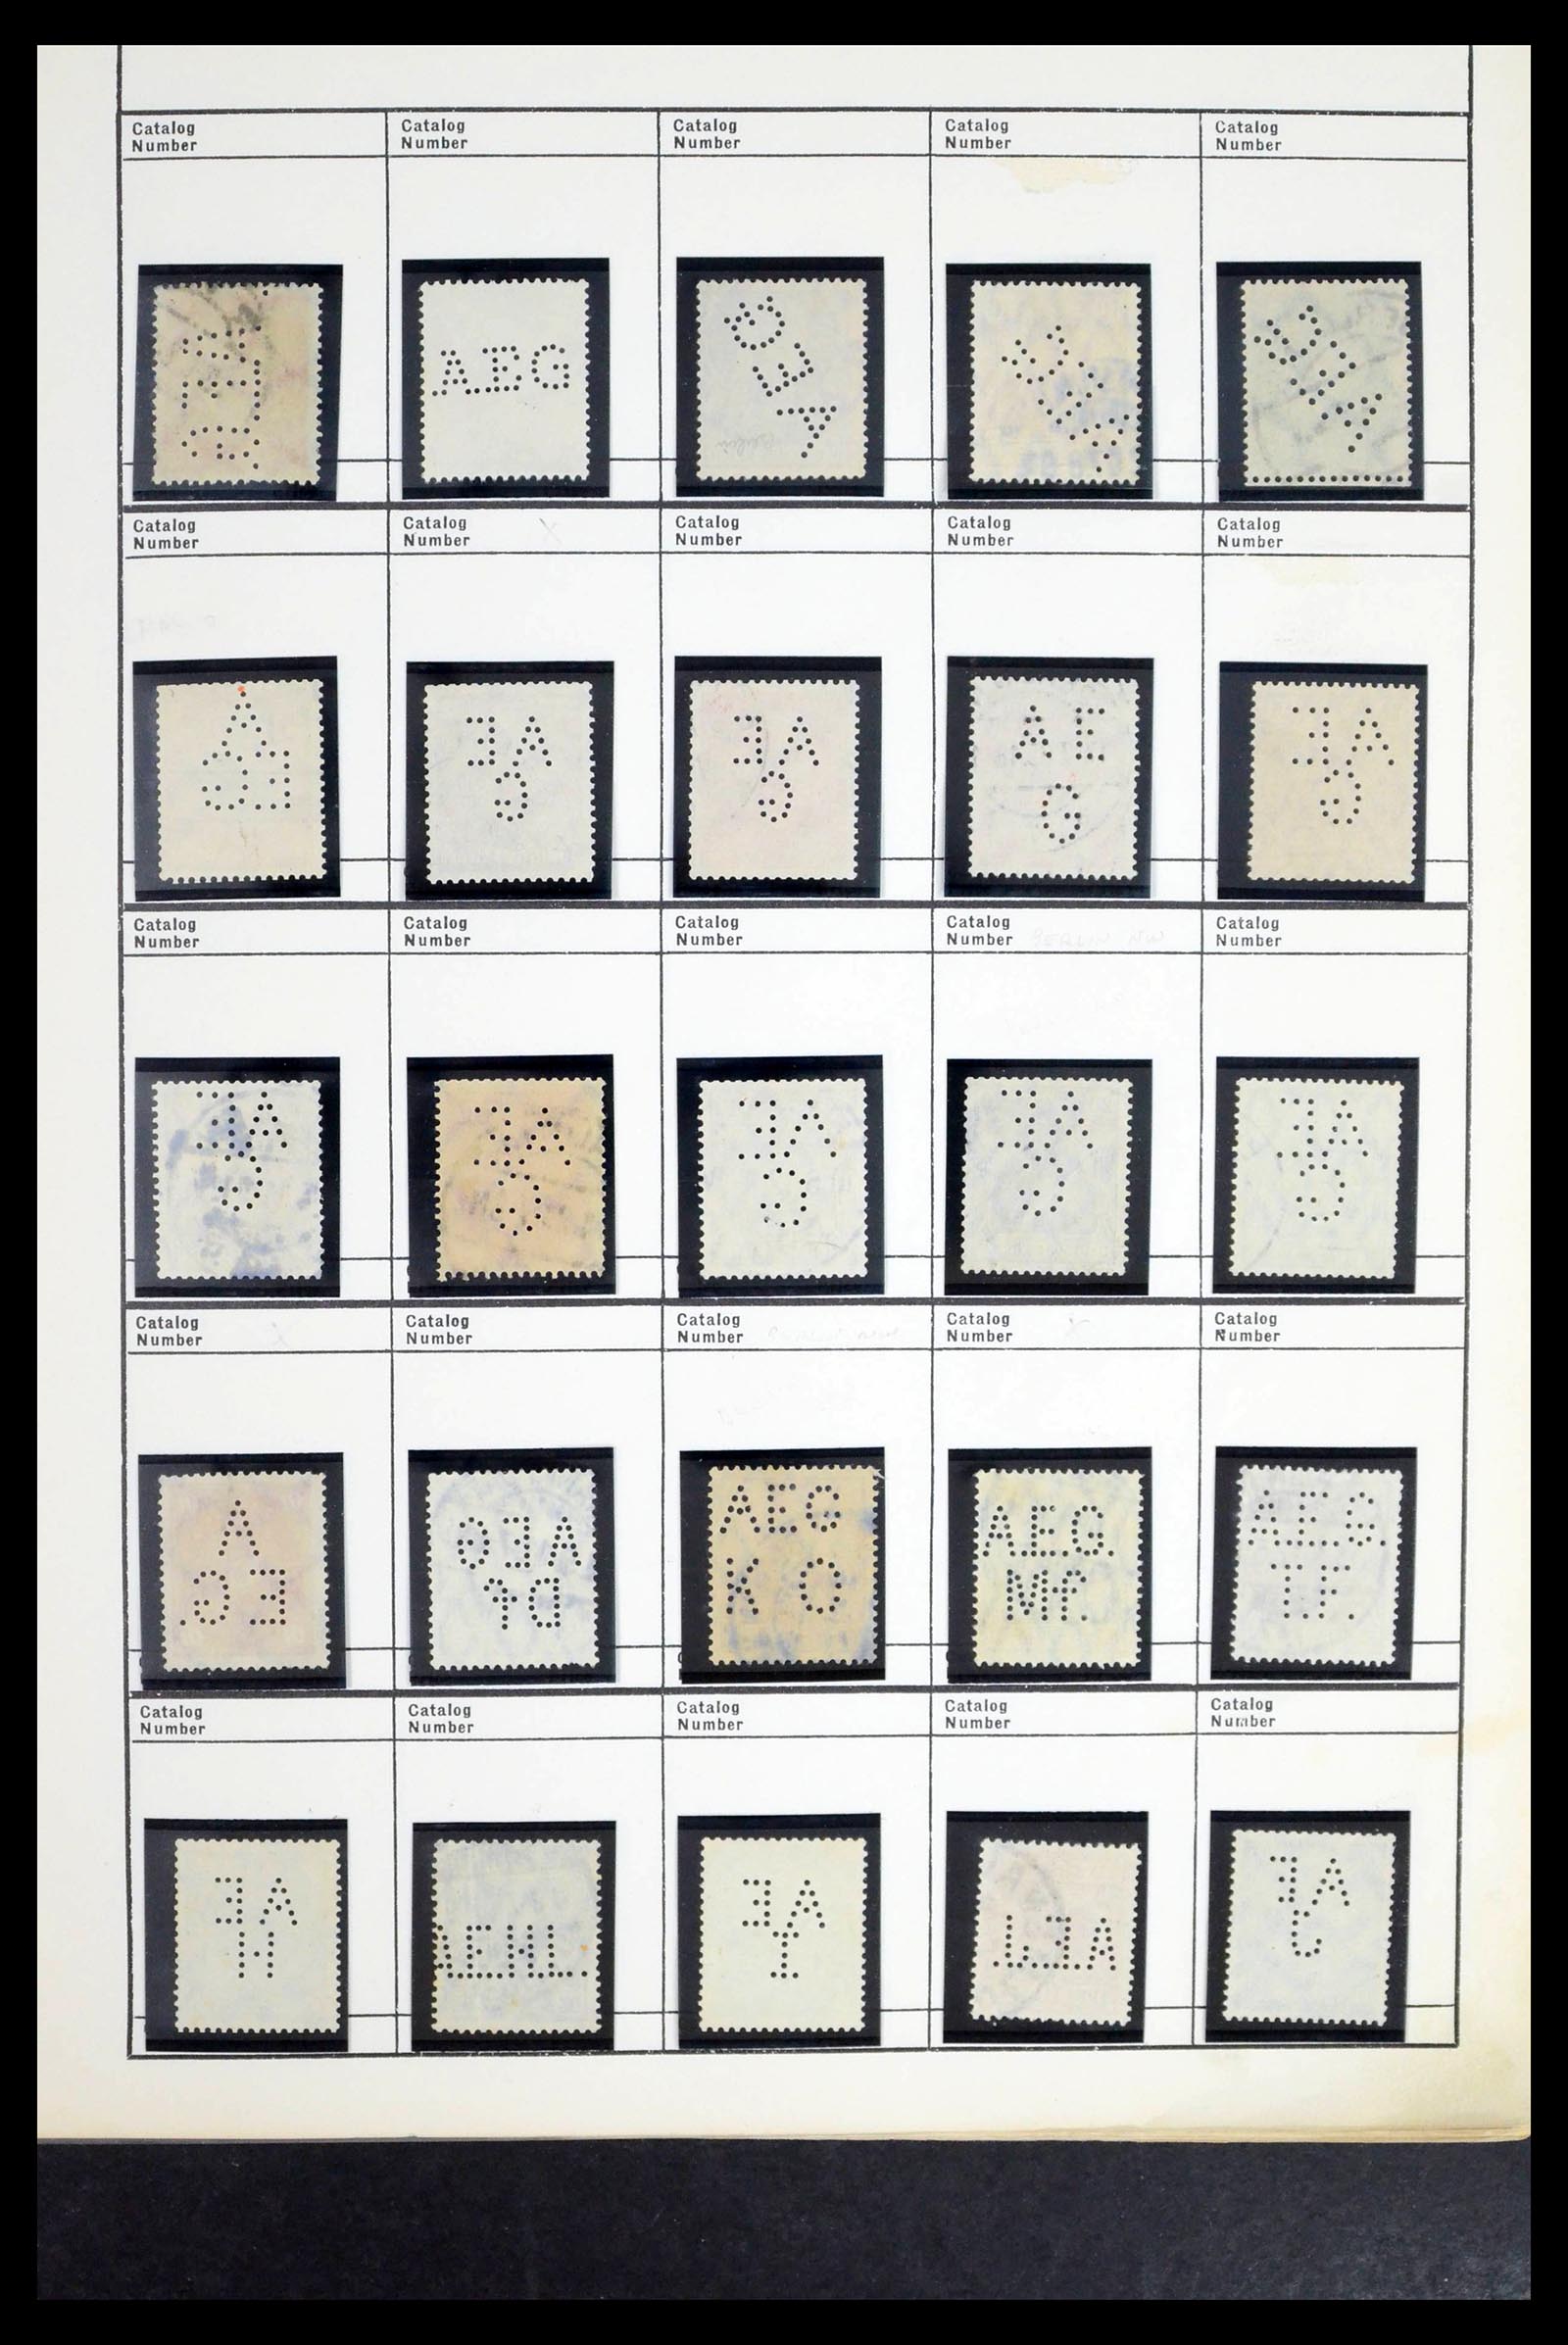 Catalog Number
Catalog Number
Catalog Number
Catalog Number
Catalog Number
AEG
AEG
AEG
AEG
Catalog Number
Catalog Number
Catalog Number
Catalog Number
Catalog Number
A
EG
AE
G
AE
G
AE
G
AE
G
Catalog Number
Catalog Number
Catalog Number
Catalog Number BERLIN NW
Catalog Number
AE
G
AE
G
AE
G
AE
G
AE
G
Catalog Number
Catalog Number
Catalog Number
Catalog Number
Catalog Number
A
EG.
AEG
AEG
K O
AEG.
Mf.
A.E.G.
T.F.
Catalog Number
Catalog Number
Catalog Number
Catalog Number
Catalog Number
AE
H
AEHL.
AE
I
A.E.L.
AE
J